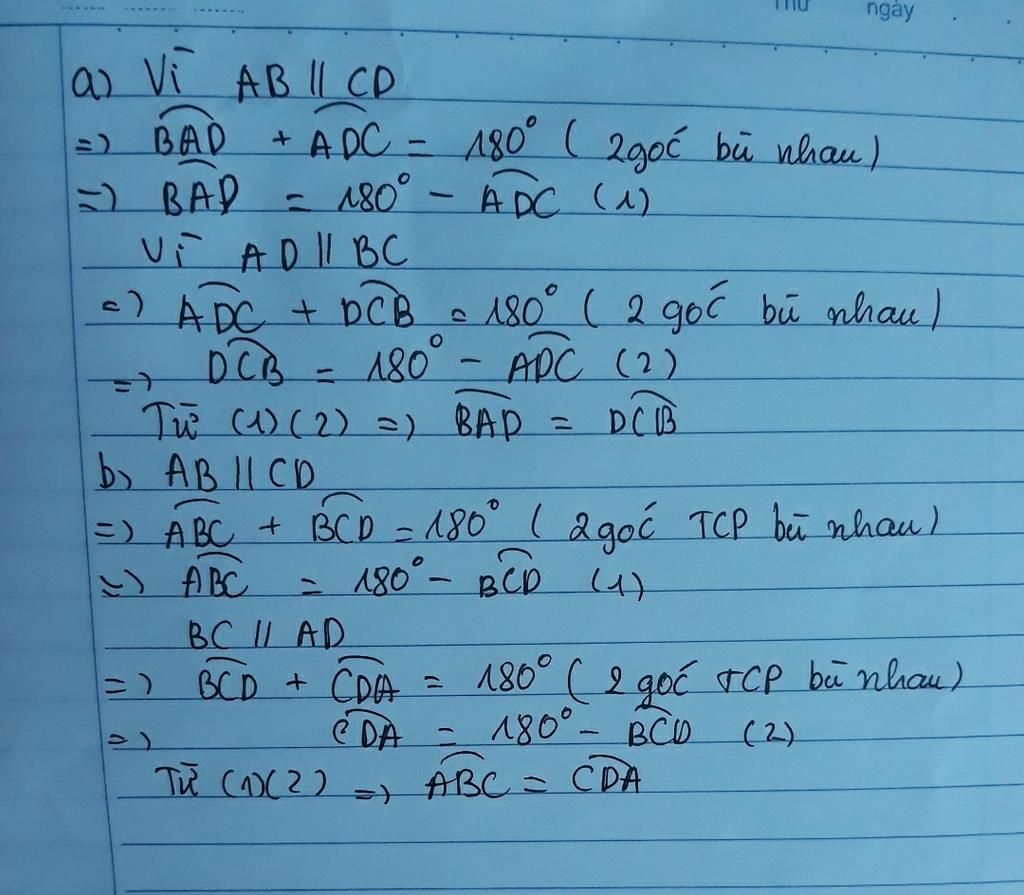 Thứ ngày
a) Vì AB // CD
=> BAD + ADC = 180° ( 2 góc bù nhau)
=> BAD = 180° - ADC (1)
Vì AD // BC
=> ADC + DCB = 180° ( 2 góc bù nhau)
=> DCB = 180° - ADC (2)
Từ (1)(2) => BAD = DCB
b) AB // CD
=> ABC + BCD = 180° ( 2 góc TCP bù nhau)
=> ABC = 180° - BCD (1)
BC // AD
=> BCD + CDA = 180° ( 2 góc TCP bù nhau)
=> CDA = 180° - BCD (2)
Từ (1)(2) => ABC = CDA